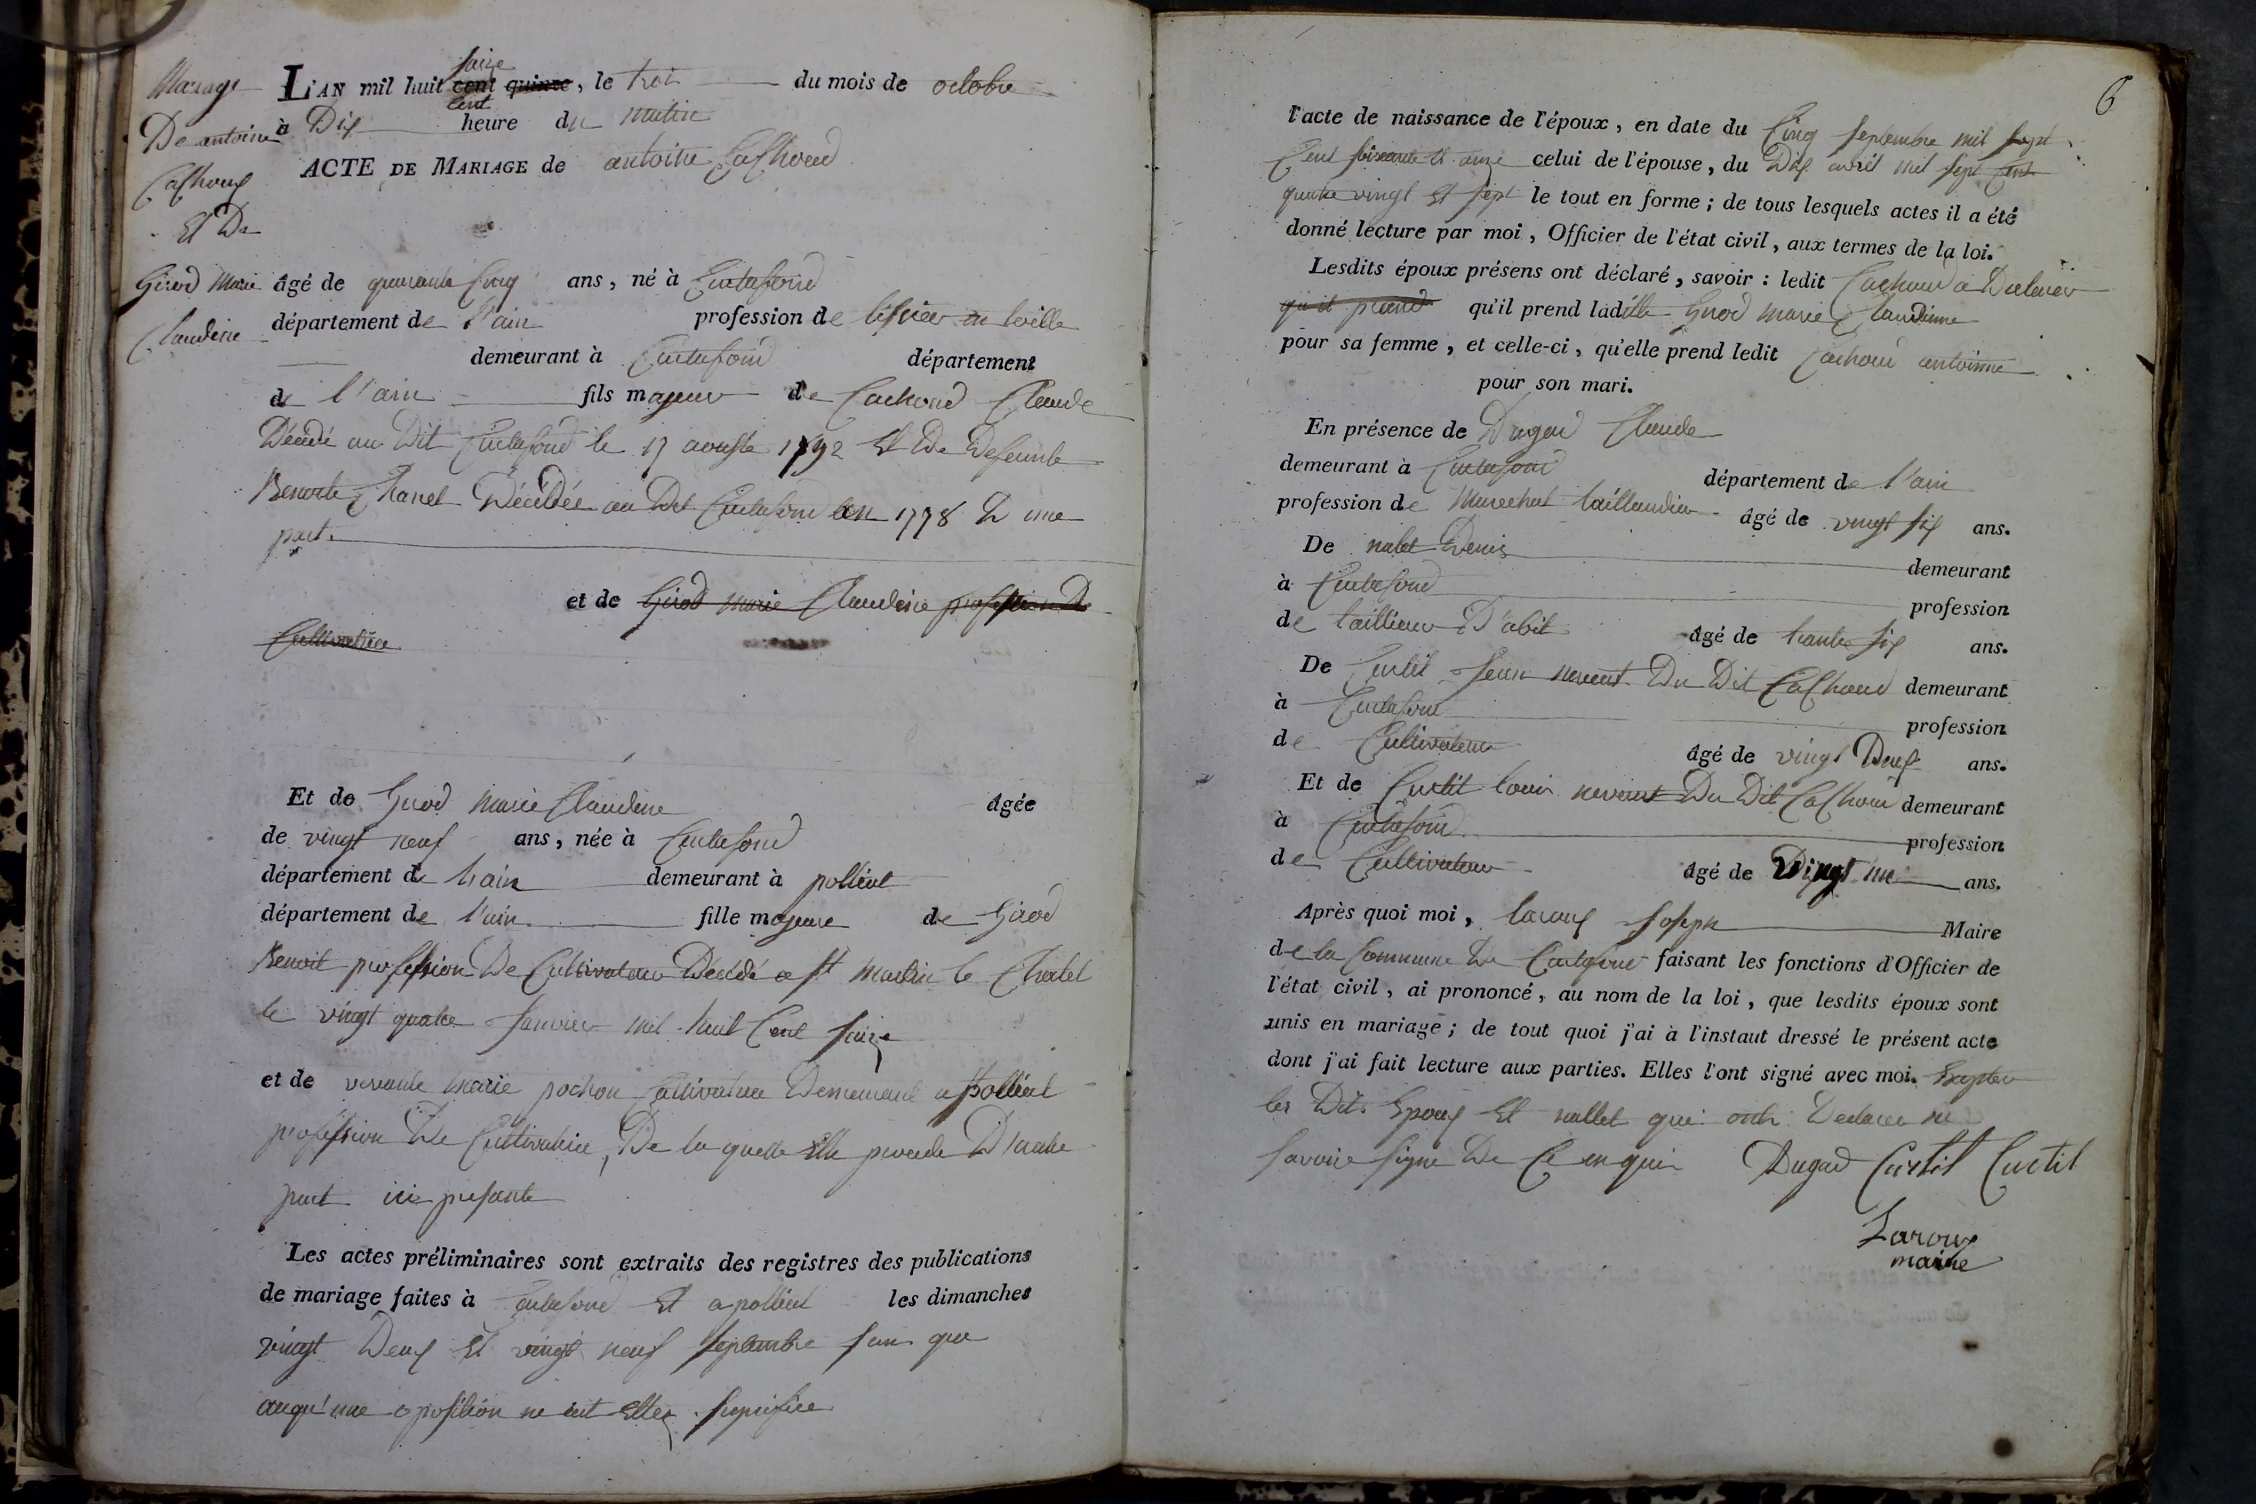 Mariage
De antoine
Cachoux
Et De
Girod Marie
Claudine
saize
L'AN mil huit cent quinze, le troi du mois de octobre
cent
à Dix heure du matin
ACTE DE MARIAGE de antoine Cachoud
âgé de quarante Cinq ans, né à Curtafond
département de l'ain profession de tissier en toille
demeurant à Curtafond département
de l'ain fils majeur de Cachoud Claude
Décédé au Dit Curtafond le 17 aouste 1792 Et De Defeunte
Benoite Chanel Décédée au Dit Curtafond len 1778 D'une
part.
et de Girod Marie Claudine profession De
Cultivatrice
Et de Girod Marie Claudine âgée
de vingt neuf ans, née à Curtafond
département de l'ain demeurant à polliat
département de l'ain fille majeure de Girod
Benoit profession De Cultivateur Décédé a st Martin le Chatel
le vingt quatre Janvier mil huit Cent saize
et de vivante Marie pochon Cultivatrice Demeurant a polliat
profession De Cultivatrice, De la quelle Elle procede D'autre
part ici presante
Les actes préliminaires sont extraits des registres des publications
de mariage faites à Curtafond Et a polliat les dimanches
vingt Deux Et vingt neuf septembre sans que
auqu'une oposition ne eut Ettez
6
l'acte de naissance de l'époux, en date du Cinq septembre mil sept
Cent soixante et onze celui de l'épouse, du Dix avril mil sept Cent
quatre vingt Et sept le tout en forme ; de tous lesquels actes il a été
donné lecture par moi, Officier de l'état civil, aux termes de la loi.
Lesdits époux présens ont déclaré, savoir : ledit Cachoud a Declarer
qu'il prend qu'il prend laditte Girod Marie Claudinne
pour sa femme, et celle-ci, qu'elle prend ledit Cachoud antoinne
pour son mari.
En présence de Dugad Claude
demeurant à Curtafond département de l'ain
profession de Marechal taillandier âgé de vingt six ans.
De nalet Denis demeurant
à Curtafond profession
de taillieur D'abit âgé de trante six ans.
De Curtil Jean neveut Du Dit Cachoud demeurant
à Curtafond profession
de Cultivateur âgé de vingt Deux ans.
Et de Curtil louis neveut Du Dit Cachoud demeurant
à Curtafond profession
de Cultivateur âgé de Vingt un ans.
Après quoi moi, laroux Joseph Maire
de la Commune De Curtafond faisant les fonctions d'Officier de
l'état civil, ai prononcé, au nom de la loi, que lesdits époux sont
unis en mariage ; de tout quoi j'ai à l'instaut dressé le présent acte
dont j'ai fait lecture aux parties. Elles l'ont signé avec moi. Exepter
les Dits Epoux Et nallet qui onts Declarer ne
savoire signe De Ce enquis Dugad Curtil Curtil
Laroux
maire